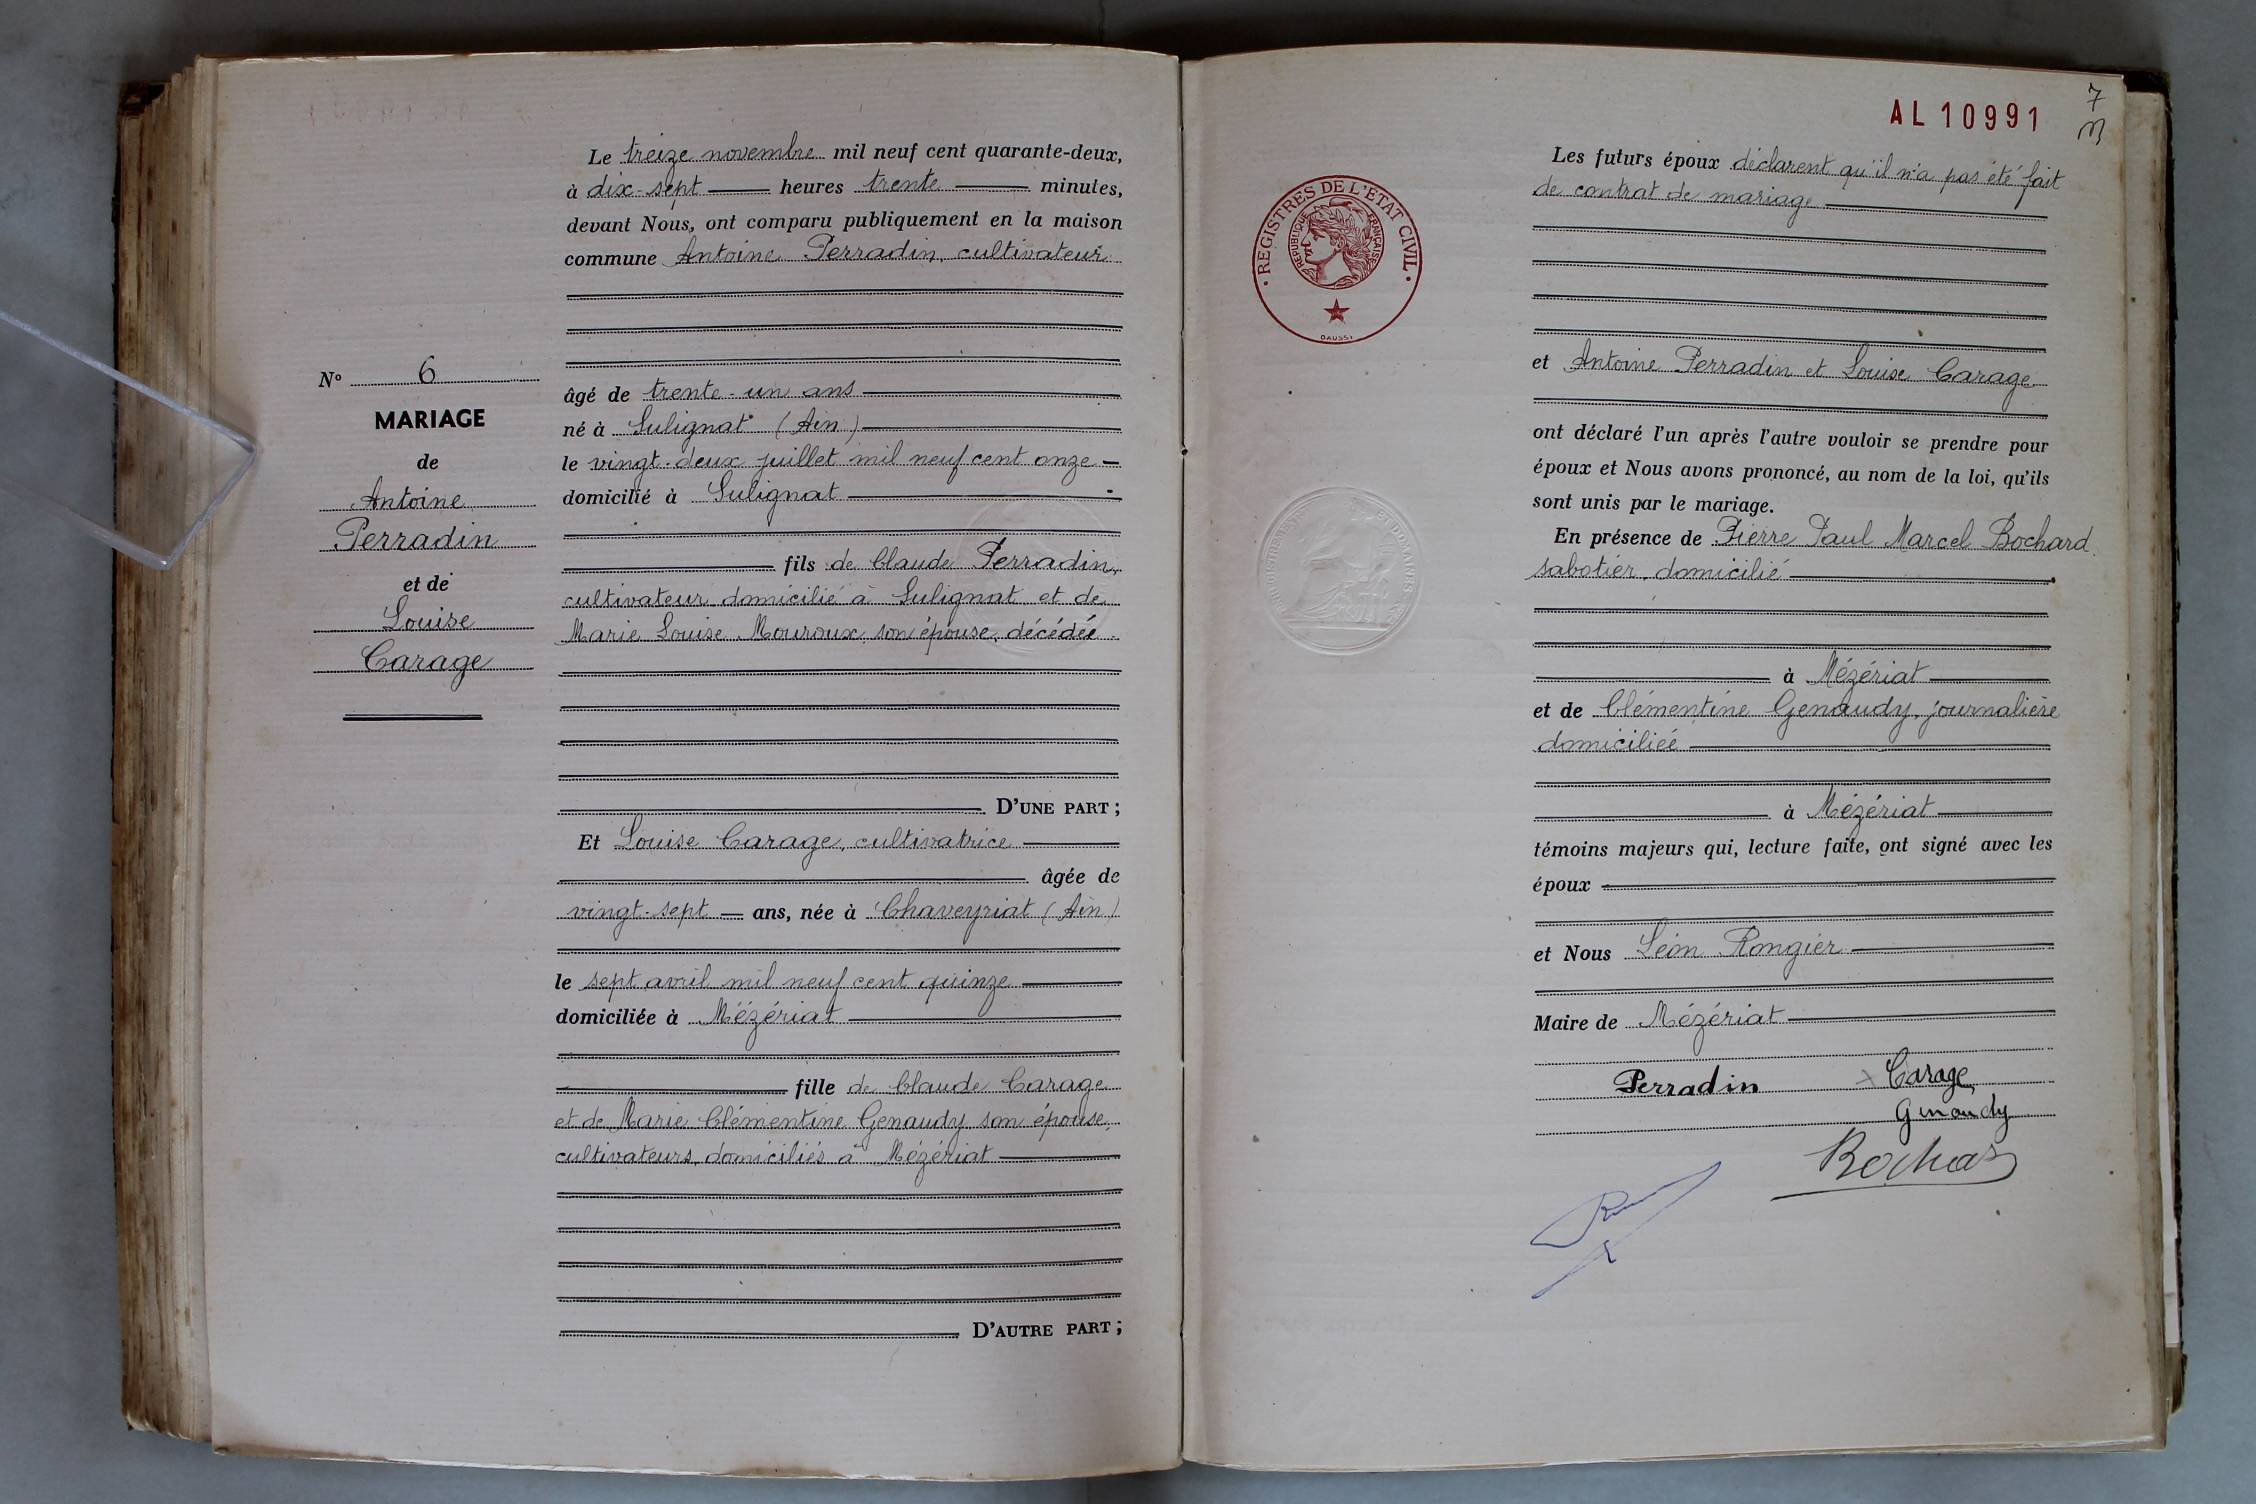 Le treize novembre mil neuf cent quarante-deux,
à dix-sept heures trente minutes,
devant Nous, ont comparu publiquement en la maison
commune Antoine Perradin, cultivateur
N° 6
MARIAGE
de
Antoine
Perradin
et de
Louise
Carage
âgé de trente-un ans
né à Sulignat (Ain)
le vingt-deux juillet mil neuf cent onze
domicilié à Sulignat
fils de Claude Perradin,
cultivateur domicilié à Sulignat et de
Marie Louise Mouroux, son épouse, décédée
D'UNE PART ;
Et Louise Carage, cultivatrice
âgée de
vingt-sept ans, née à Chaveyriat (Ain)
le sept avril mil neuf cent quinze
domiciliée à Mézériat
fille de Claude Carage
et de Marie Clémentine Genaudy son épouse,
cultivateurs, domiciliés à Mézériat
D'AUTRE PART ;
AL 10991
7
REGISTRES DE L'ÉTAT CIVIL
RÉPUBLIQUE FRANÇAISE
DAUSSY
Les futurs époux déclarent qu'il n'a pas été fait
de contrat de mariage
et Antoine Perradin et Louise Carage
ont déclaré l'un après l'autre vouloir se prendre pour
époux et Nous avons prononcé, au nom de la loi, qu'ils
sont unis par le mariage.
En présence de Pierre Paul Marcel Bochard
sabotier, domicilié
à Mézériat
et de Clémentine Genaudy, journalière
domiciliée
à Mézériat
témoins majeurs qui, lecture faite, ont signé avec les
époux
et Nous Léon Rongier
Maire de Mézériat
Perradin
Carage
Genaudy